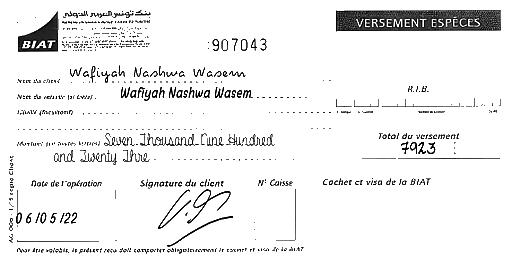 بنك تونس العربي الدولي
BIAT
VERSEMENT ESPÈCES
907043
Nom du client Wafiyah Nashwa Wasem
R.I.B.
Wafiyah Nashwa Wasem
Montant (en toutes lettres) Seven Thousand Nine Hundred
and Twenty Thre
Total du versement
7923
Date de l'opération
Signature du client
N° Caisse
Cachet et visa de la BIAT
06/05/22
Pour être valable, le présent reçu doit comporter obligatoirement le cachet et visa de la BIAT